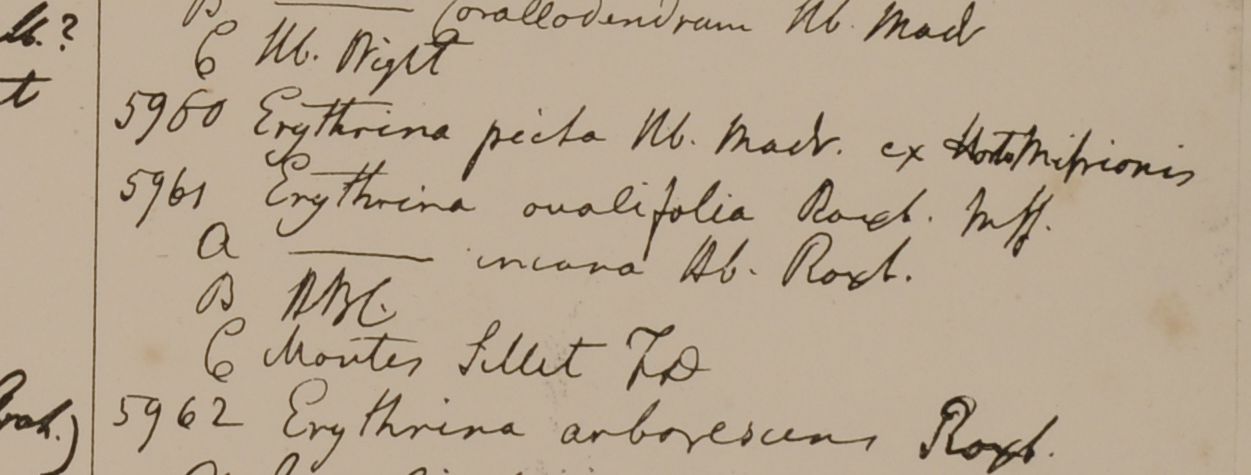 B —— Corallodendrum Hb. Madr
C Hb. Wight
5960 Erythrina picta Hb. Madr. ex Horto Missionis
5961 Erythrina ovalifolia Roxb. Mss.
a —— incana Hb. Roxb.
B HBC.
C Montes Sillet F.D
5962 Erythrina arborescens Roxb.